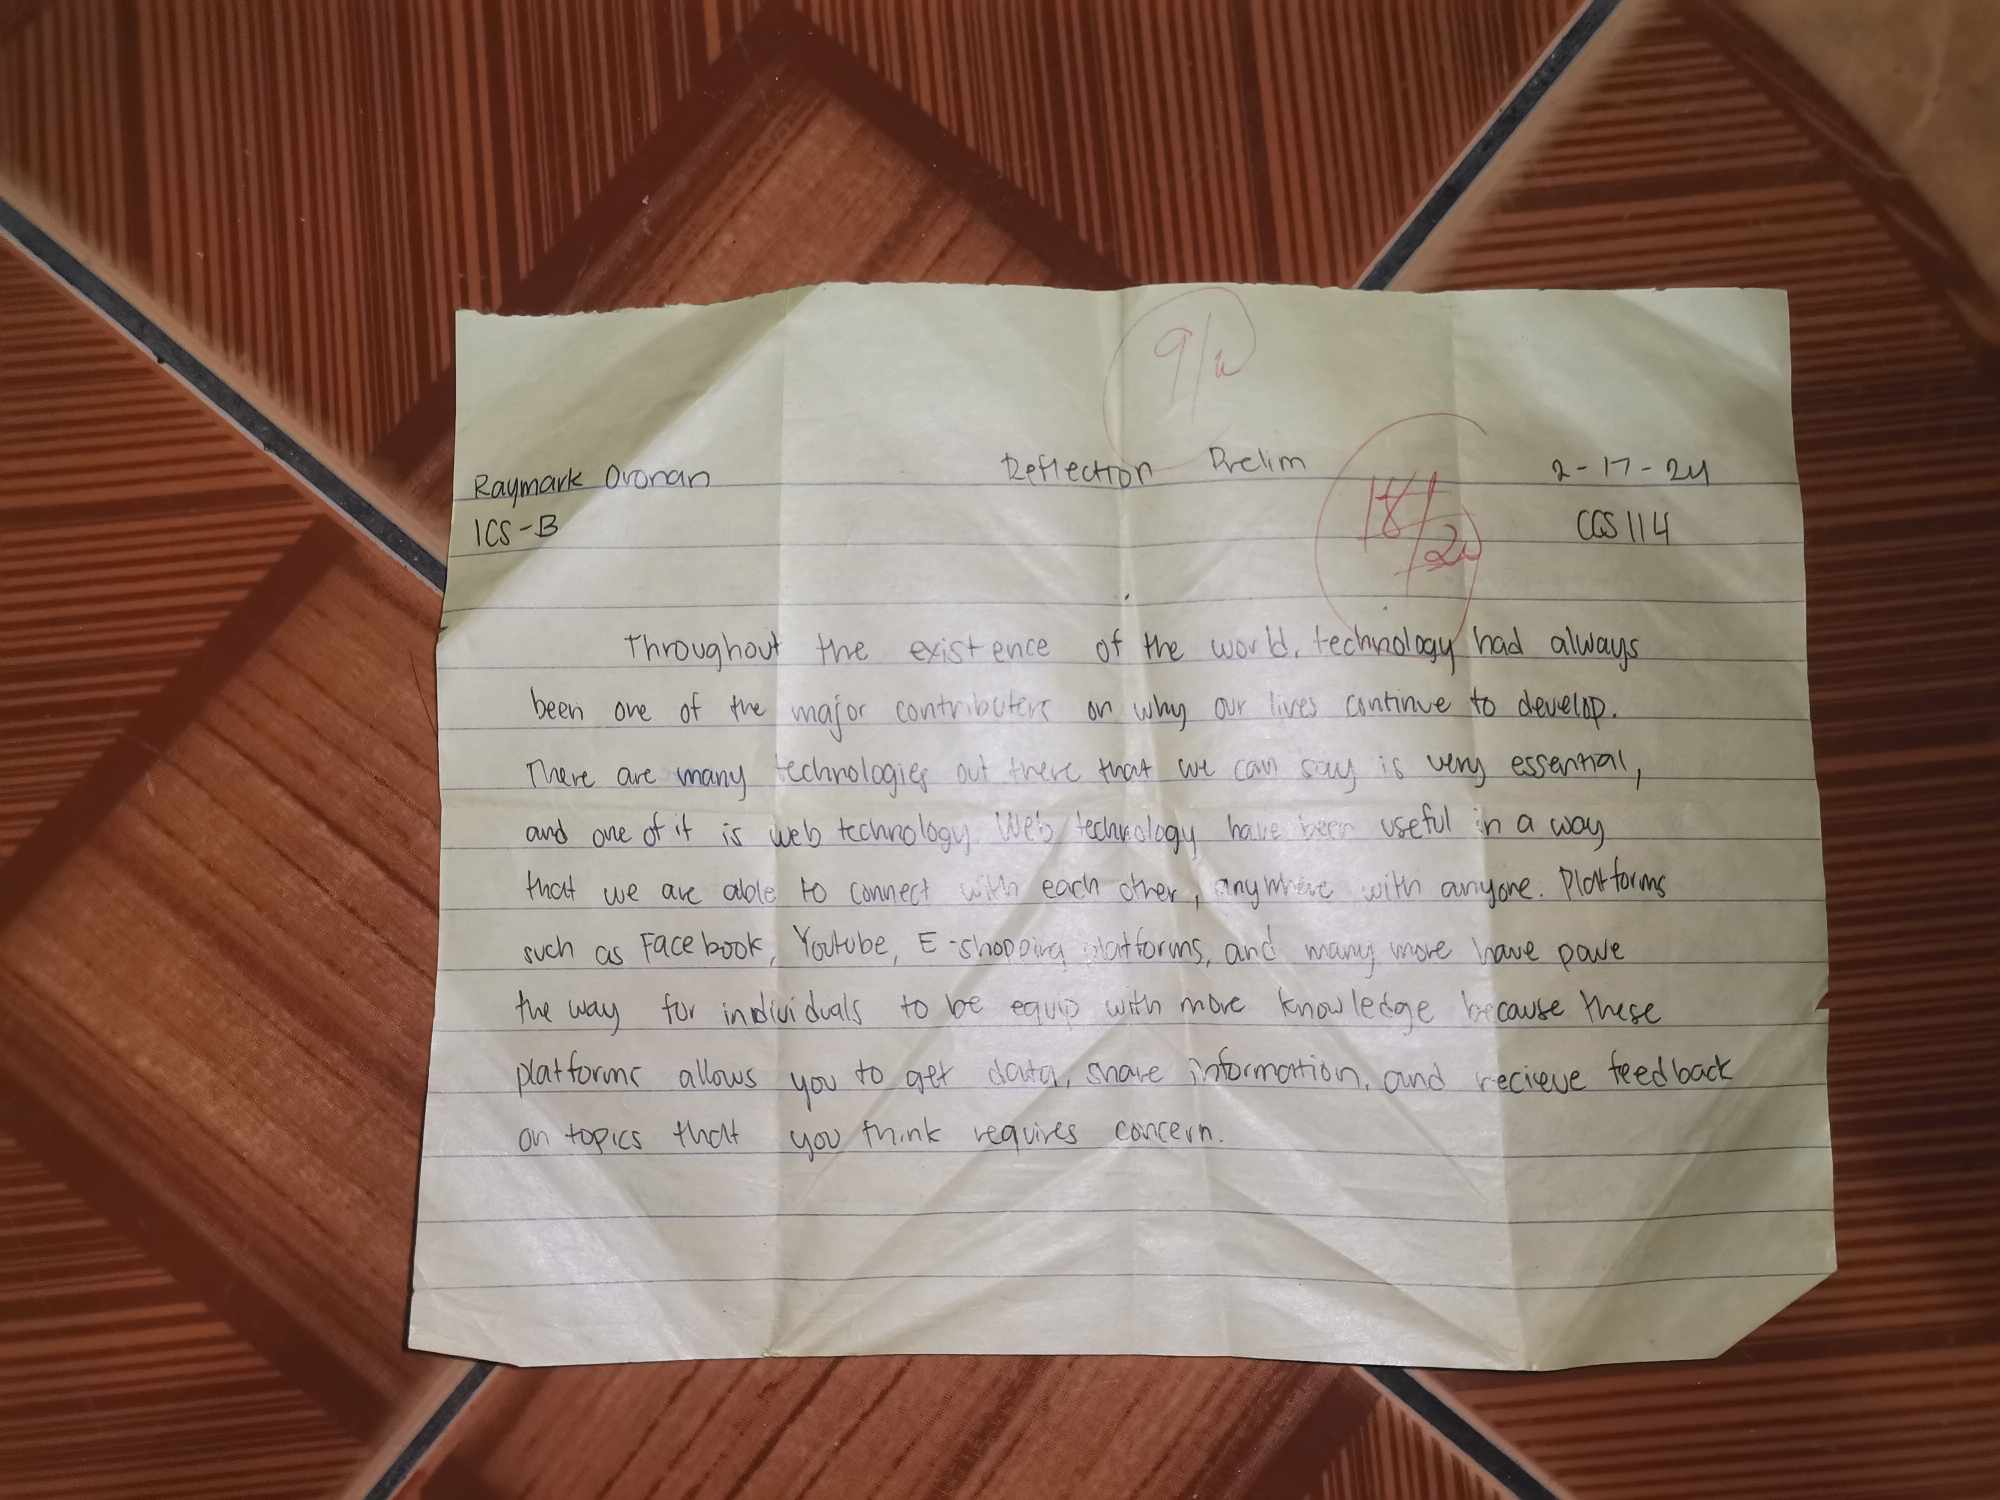 9/10
Raymark Oronan Reflection Prelim 2-17-24
1CS-B 18/20 CCS 114
Throughout the existence of the world, technology had always
been one of the major contributers on why our lives continue to develop.
There are many technologies out there that we can say is very essential,
and one of it is web technology. Web technology have been useful in a way
that we are able to connect with each other, anywhere with anyone. Platforms
such as Facebook, Youtube, E-shopping platforms, and many more have pave
the way for individuals to be equip with more knowledge because these
platforms allows you to get data, share information, and recieve feedback
on topics that you think requires concern.